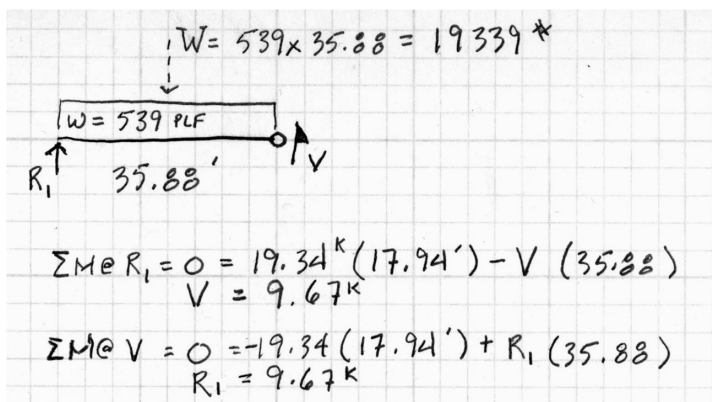 W = 539 x 35.88 = 19339 #
W = 539 PLF
R₁ 35.88' V
ΣM@ R₁ = 0 = 19.34ᴷ (17.94') - V (35.88)
V = 9.67ᴷ
ΣM@ V = 0 = -19.34 (17.94') + R₁ (35.88)
R₁ = 9.67ᴷ